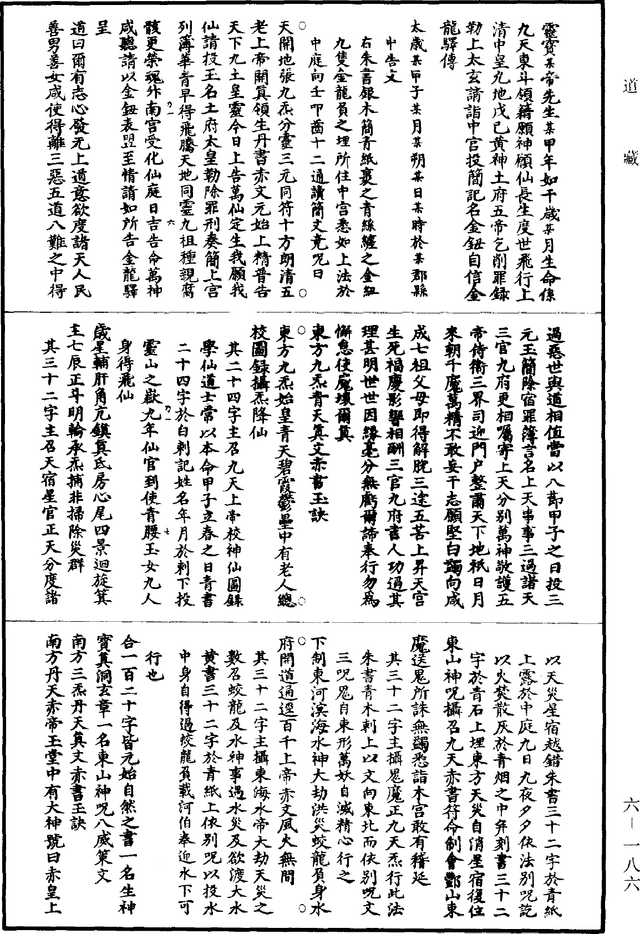 道藏
靈寶某帝先生某甲年如干歲某月生命係
九天東斗領籍願神願仙長生度世飛行上
清中皇九地戊已黃神土府五帝乞削罪錄
勒上太玄請詣中宮投簡記名金鈕自信金
龍驛傳
太歲某甲子某月某朔某日某時於某郡縣
中告文
右朱書銀木簡青紙裹之青絲纏之金鈕
九隻金龍負之埋所住中宮悉如上法於
中庭向壬叩齒十二通讀簡文竟呪曰
天開地張九炁分靈三元同符十方朗清五
老上帝開真領生丹書赤文元始上精普告
天下九土皇靈今日上告萬仙定生我願我
仙請投玉名土府太皇勒除罪刑奏簡上宮
列簿華青早得飛騰天地同靈九祖種親腐
骸更榮魂外南宮受化仙庭日吉告命萬神
咸聽請以金鈕表盟至情請如所告金龍驛
呈
道曰爾有志心發无上道意欲度諸天人民
善男善女咸使得離三惡五道八難之中得
過惡世與道相值當以八節甲子之日投三
元玉簡除宿罪簿言名上天事事三過諸天
三官九府更相囑寄上天分別萬神敬護五
帝侍衛三界司迎門戶整肅天下地祇日月
來朝千魔萬精不敢妄干志願堅白躅向咸
成七祖父母即得解脫三途五苦上昇天宮
生死福慶影響相酬三官九府書人功過其
理甚明世世因緣毫分無虧爾諦奉行勿為
懈怠使魔壞爾真
東方九炁青天真文赤書玉訣
東方九炁始皇青天碧霞鬱壘中有老人總
校圖錄攝炁降仙
其二十四字主召九天上帝校神仙圖錄
學仙道士常以本命甲子立春之日青書
二十四字於白刺記姓名年月於刺下投
靈山之嶽九年仙官到使青腰玉女九人
身得飛仙
歲星輔肝角亢鎮真氐房心尾四景迴旋箕
主七辰正斗明輪承炁捕非掃除災群
其三十二字主召天宿星官正天分度諸
以天災星宿越錯朱書三十二字於青紙
上露於中庭九日九夜夕夕依法別呪訖
以火焚散灰於青烟之中并刻書三十二
字於青石上埋東方天災自消星宿復住
東山神呪攝召九天赤書符命制會酆山東
魔送鬼所誅無躅悉詣木宮敢有稽延
其三十二字主攝鬼魔正九天炁行此法
朱書青木刺上以文向東北而依別呪文
三呪鬼自束形萬妖自滅精心行之
下制東河溟海水神大劫洪災蛟龍負身水
府開道通逕百千上帝赤文風火無間
其三十二字主攝東海水帝大劫天災之
數召蛟龍及水神事遇水災及欲渡大水
黃書三十二字於青紙上依別呪以投水
中身自得過蛟龍負載河伯奉迎水下可
行也
合一百二十字皆元始自然之書一名生神
寶真洞玄章一名東山神呪八威策文
南方三炁丹天真文赤書玉訣
南方丹天赤帝玉堂中有大神號曰赤皇上
六—一八六